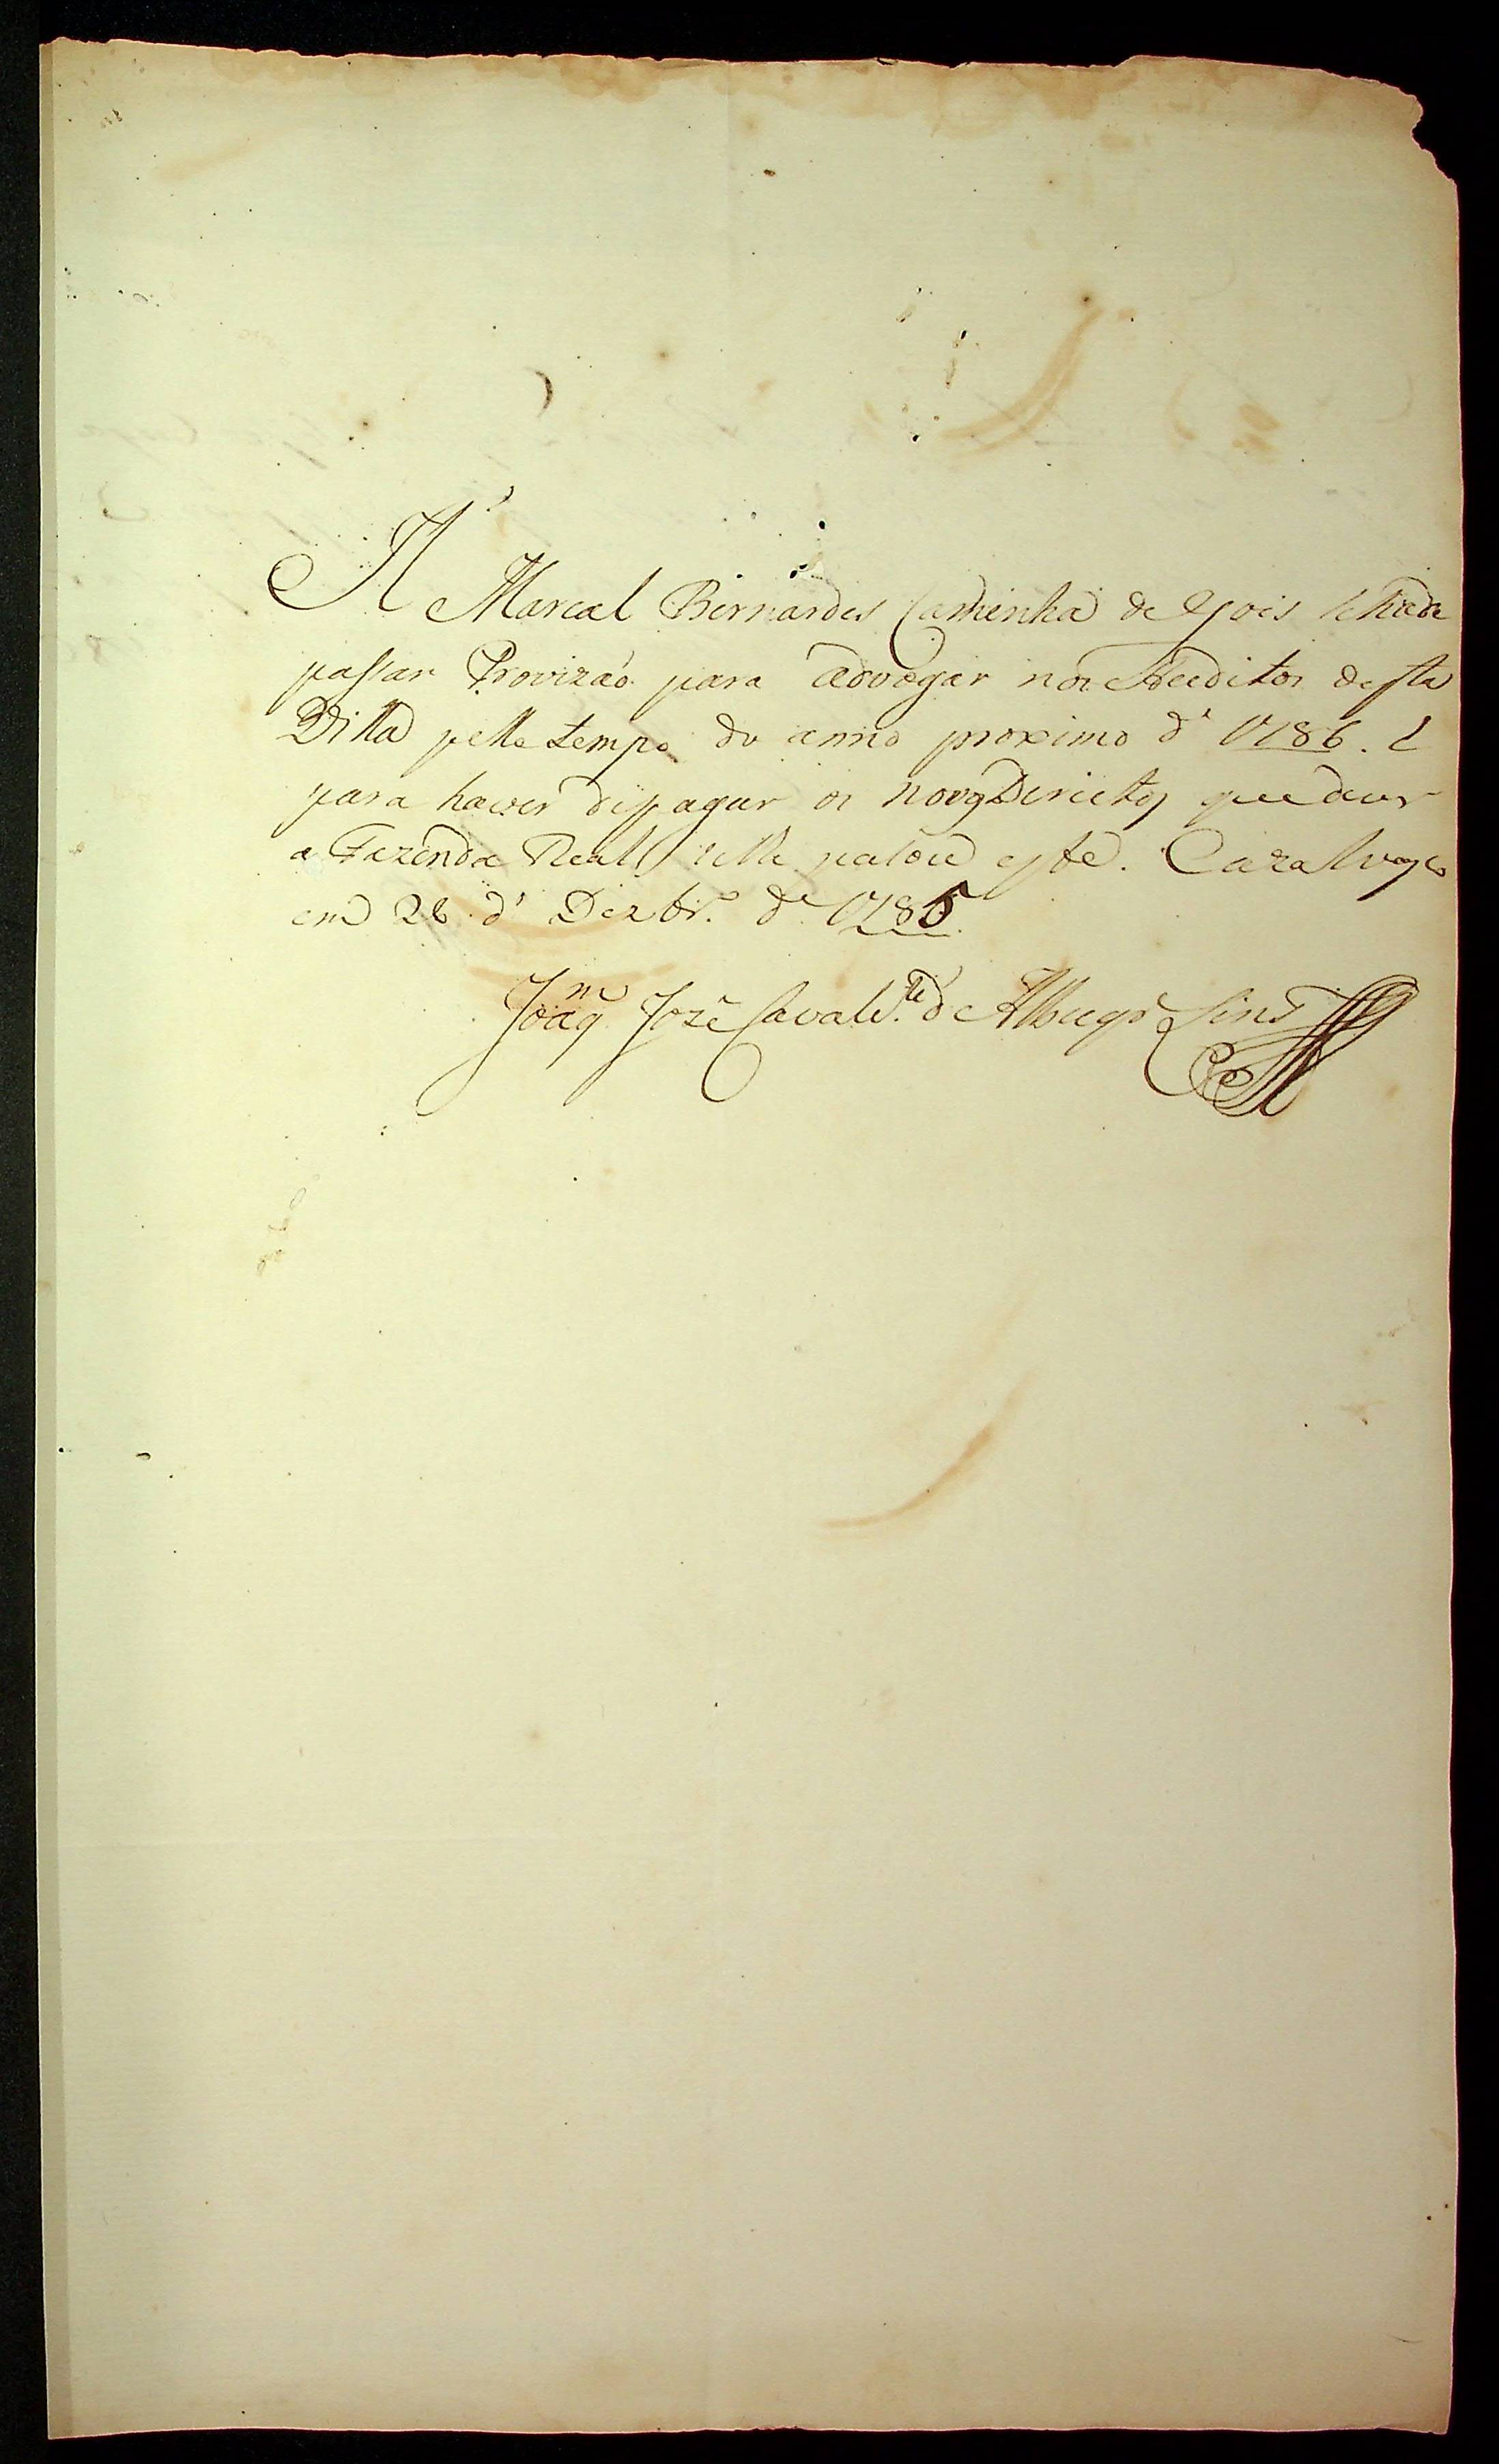 A Marcal Bernardes Caminha de Gois se hade
passar Provizaó para advogar nos Auditos desta
Villa pello tempo do anno proximo d' 1786. E
para haver de pagar os novos Dereitos que dever
a Fazenda Real selhe pasou este. Caza
em 28 d' Dezbr.º de 1785
Joaq.m Jozé Cavalc.te d' Albuqr.e Lins